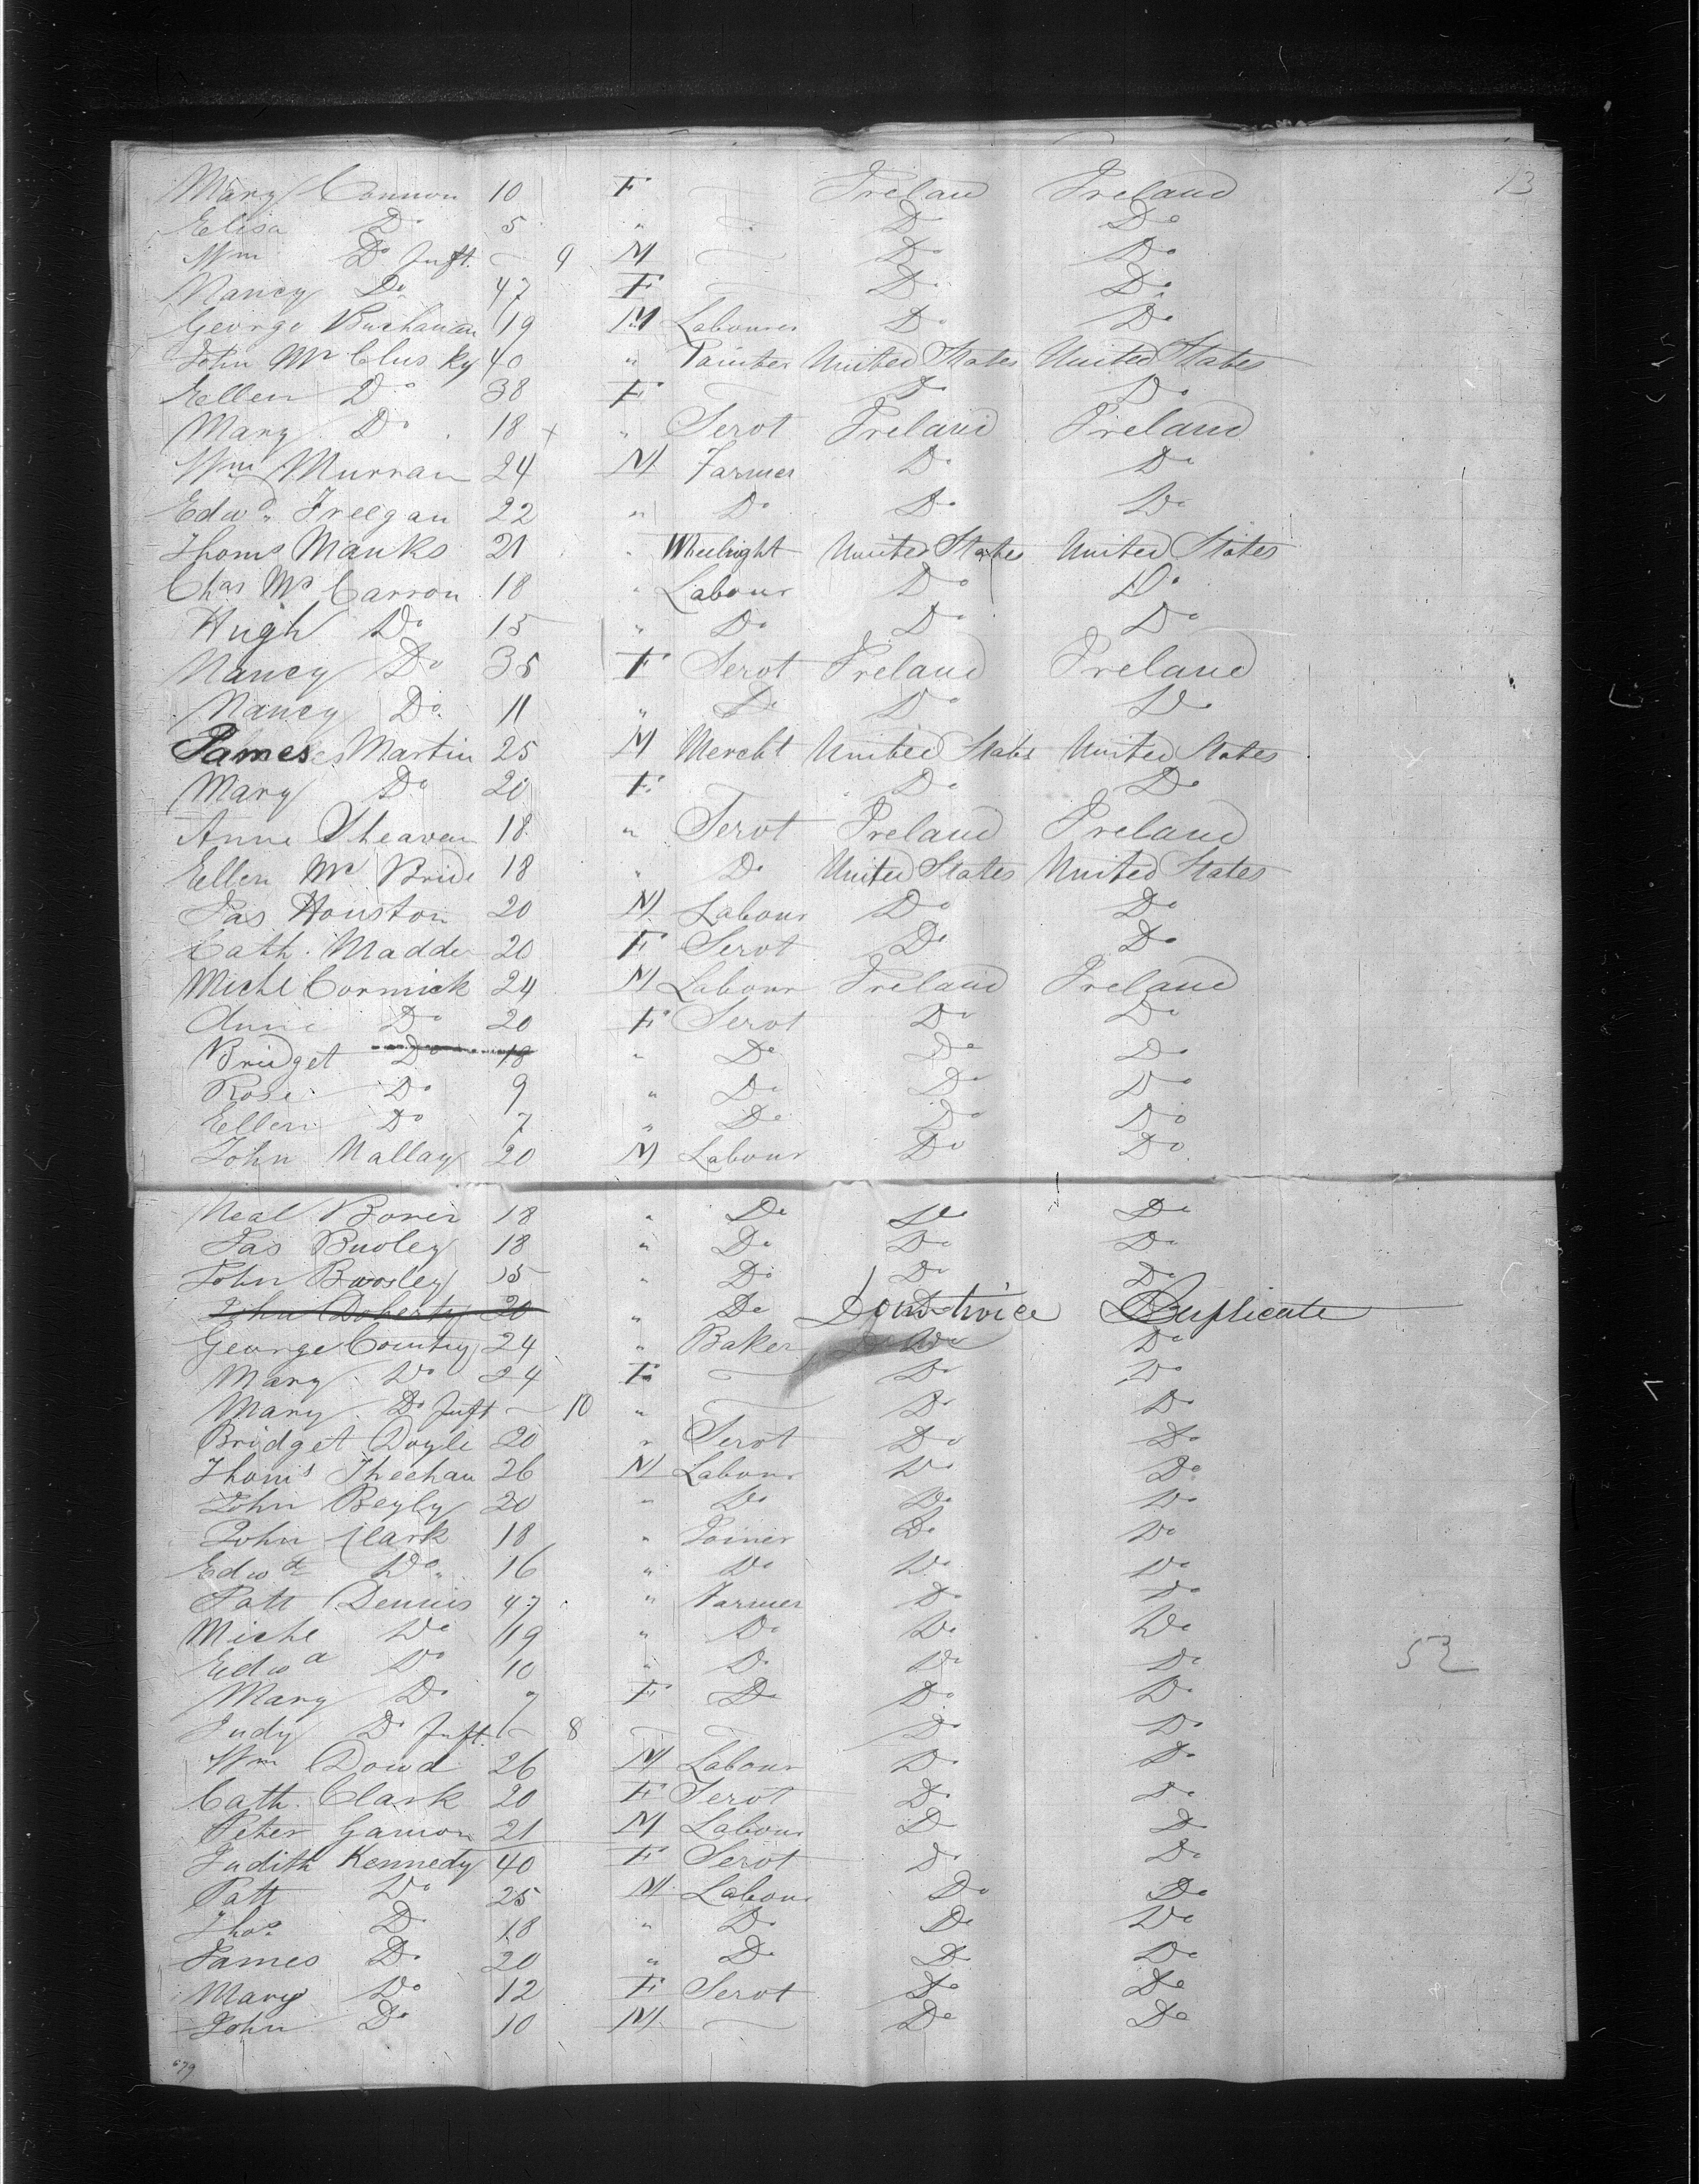 13
Mary Connon 10 F Irelan Ireland
Elisa Do 5 " Do Do
Wm Do Inft. 9 M Do Do
Nancy Do 47 F Do Do
George Buchanan 19 M Labourer Do Do
John Mc Clusky 40 " Painter United States United States
Ellen Do 38 F Do Do
Mary Do 18 x " Servt Ireland Ireland
Wm Murran 24 M Farmer Do Do
Edwd Freegan 22 " Do Do Do
Thoms Manks 21 " Wheelright United States United States
Chas Mc Carron 18 " Labour Do Do
Hugh Do 15 " Do Do Do
Nancy Do 35 F Servt Ireland Ireland
Nancy Do 11 " Do Do Do
James Martin 25 M Mercht United States United States
Mary Do 20 F Do Do
Anne Sheaven 18 " Servt Ireland Ireland
Ellen Mc Bride 18 " Do United States United States
Jas Houston 20 M Labour Do Do
Cath. Madde 20 F Servt Do Do
Michl Cormick 24 M Labour Ireland Ireland
Anne Do 20 F Servt Do Do
Bridget Do 18 " Do Do Do
Rose Do 9 " Do Do Do
Ellen Do 7 " Do Do Do
John Mallay 20 M Labour Do Do
Neal Boner 18 " Do Do Do
Jas 18 " Do Do Do
John 15 " Do Do Do
John Doherty 20 " Do twice Duplicate
George Country 24 " Baker Do Do
Mary Do 24 F Do Do
Mary Do Inft 10 " Do Do
Bridget Doyle 20 " Servt Do Do
Thoms Sheehan 26 M Labour Do Do
John Begly 20 " Do Do Do
John Clark 18 " Joiner Do Do
Edwd Do 16 " Do Do Do
Patt Dennis 47 " Farmer Do Do
Michl Do 19 " Do Do Do
Edwd Do 10 " Do Do Do
52
Mary Do 7 F Do Do Do
Judy Do Inft. 8 Do Do
Wm Dowd 26 M Labour Do Do
Cath. Clark 20 F Servt Do Do
Peter Gannon 21 M Labour Do Do
Judith Kennedy 40 F Servt Do Do
Patt Do 25 M Labour Do Do
Thos Do 18 " Do Do Do
James Do 20 " Do Do Do
Mary Do 12 F Servt Do Do
John Do 10 M Do Do
679